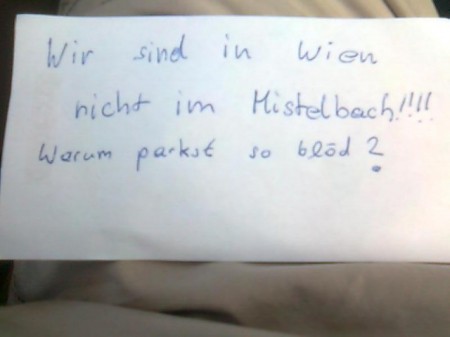 Wir sind in Wien
nicht im Mistelbach!!!!
Warum parkst so blöd?